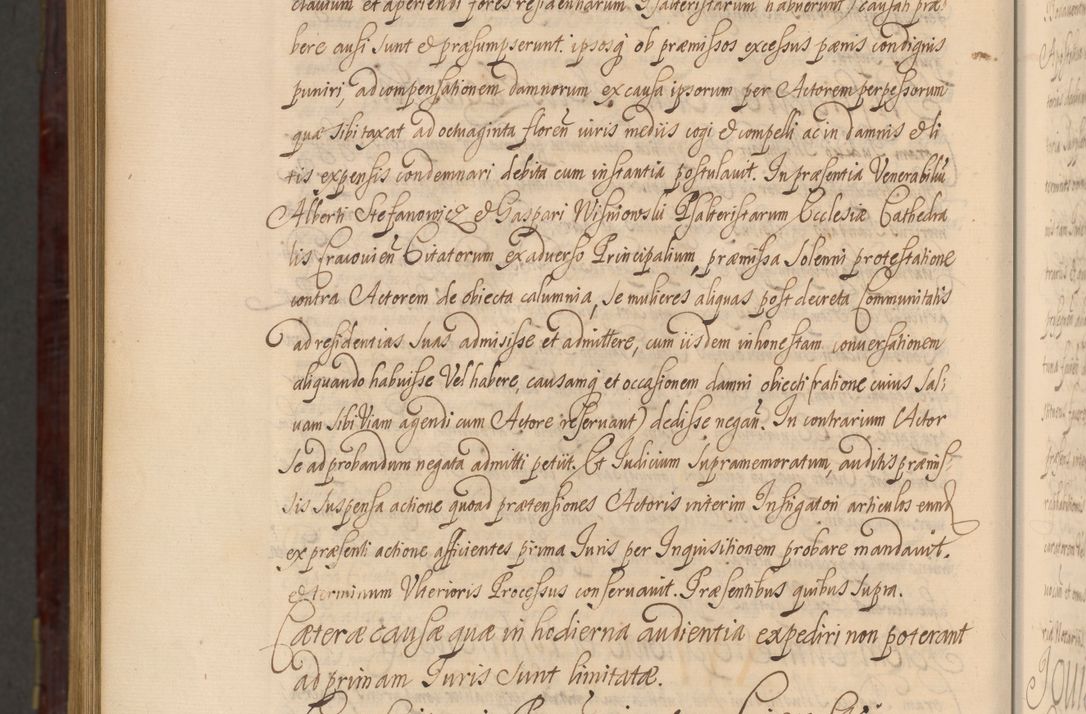 clausum et aperiendi fores residentiarum Psalteristarum habuerunt) causam præ
bere ausi sunt et præsumpserunt. ipsosq ob præmissos excessus pænis condignis
puniri, ad compensationem damnorum ex causa ipsorum per Actorem perpessorum
quæ sibi taxat ad octuaginta floreñ iuris mediis cogi et compelli ac in damnis et li
tis expensis condemnari debita cum instantia postulauit. In præsentia Venerabiliũ
Alberti Stefanowicz et Gaspari Wisniowski Psalteristarum Ecclesiæ Cathedra
lis Cracouieñ Citatorum ex aduerso Principalium, præmissa solenni protestatione
contra Actorem de obiecta calumnia, se mulieres aliquas post decreta Communitatis
ad residentias suas admisisse et admittere, cum iisdem inhonestam conuersationem
aliquando habuisse Vel habere, causamq et occasionem damni obiecti (ratione cuius sal:
uam sibi Viam agendi cum Actore reseruant) dedisse negañ. In contrarium Actor
se ad probandum negata admitti petiit. Et Iudicium supramemoratum, auditis præmis-
sis suspensa actione quoad prætensiones Actoris interim Instigatori articulos eund
ex præsenti actione afficientes prima Iuris per Inquisitionem probare mandauit.
et terminum Vlterioris Processus conseruauit. Præsentibus quibus supra.
Cæteræ causæ quæ in hodierna audientia expediri non poterant
ad primam Iuris sunt limitatæ.